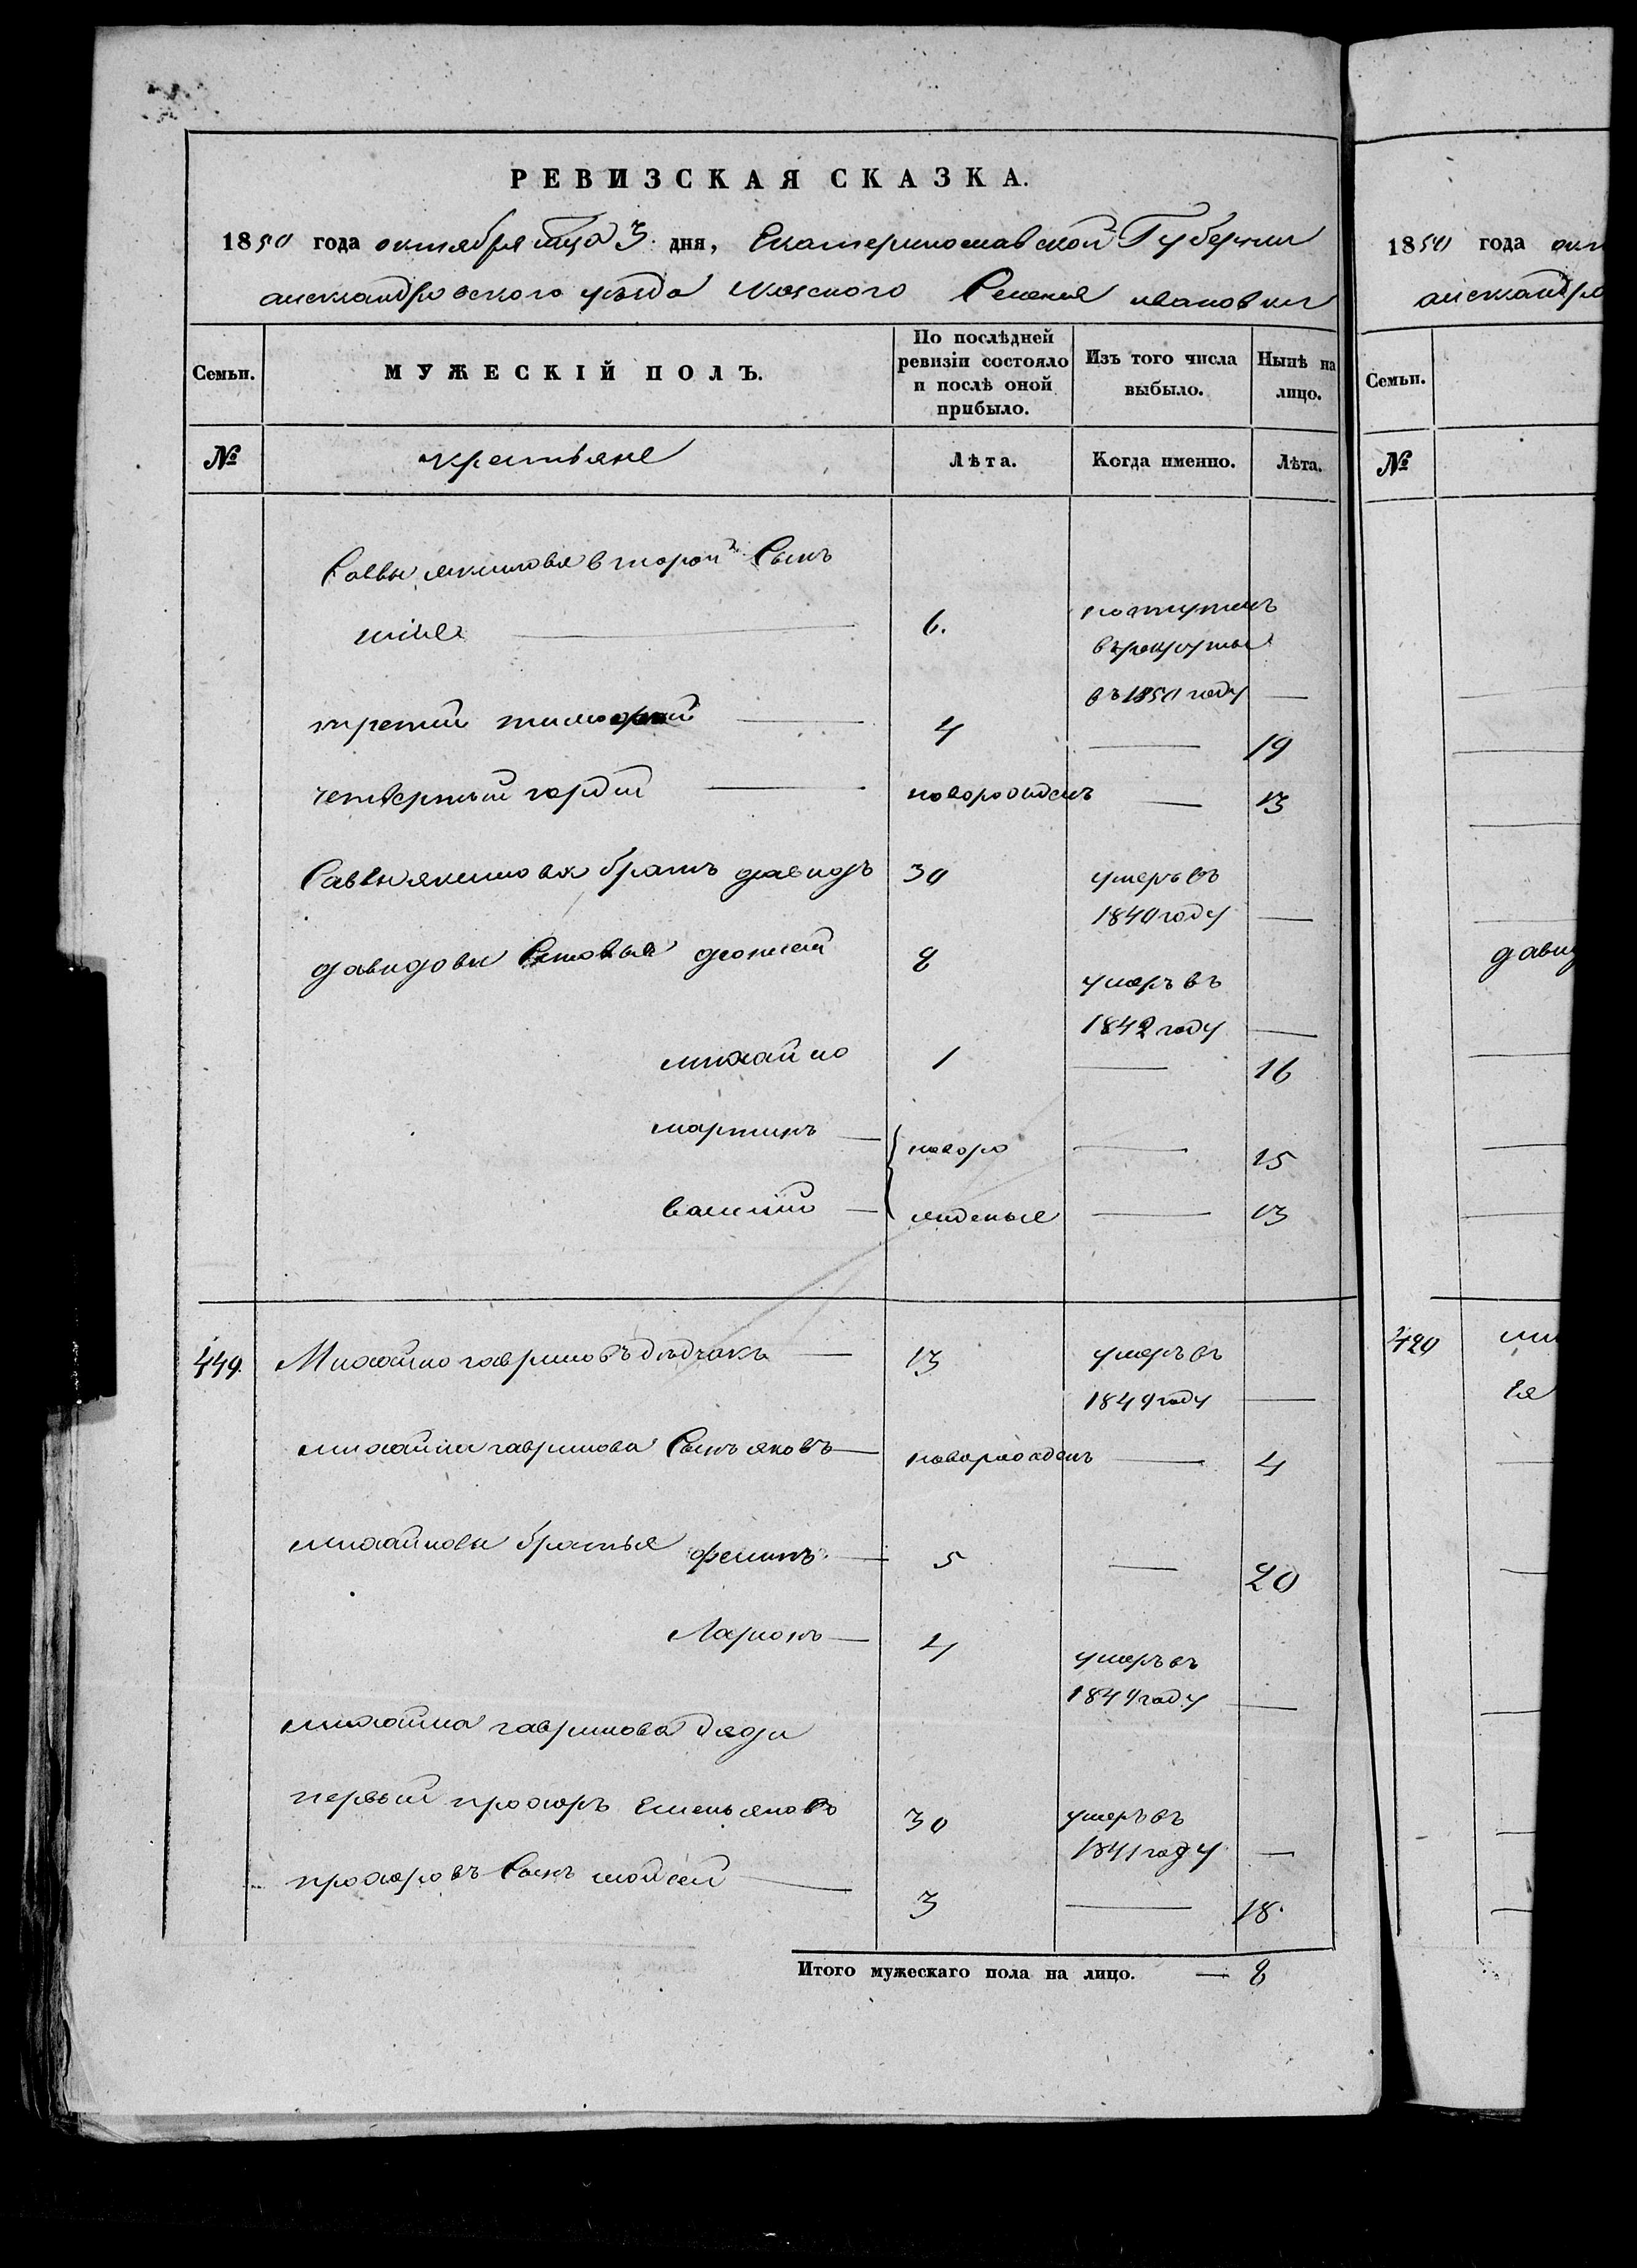 РЕВИЗСКАЯ СКАЗКА.
1850 года октября мца 3 дня, Екатеринославской Губернии
александровского уезда Селения ивановки
Семьи.
МУЖЕСКІЙ ПОЛЪ.
По послѣдней ревизіи состояло и послѣ оной прибыло.
Изъ того числа выбыло.
Нынѣ на лицо.
№
крестьяне
Лѣта.
Когда именно.
Лѣта.
Саввы якимова второй Сынъ
6. поступилъ
въ рекруты
въ 1850 году —
третий тимофей — 4 — 19
четвертый гордей — новорожденъ — 13
Саввы якимова братъ давидъ 30 умеръ въ
1840 году —
давидовы Сыновья 8 умеръ въ
1842 году —
михайло 1 — 16
мартинъ — новоро — 15
василий — жденые — 13
449. Михайло гавриловъ дядчакъ — 13 умеръ въ
1849 году —
михайлы гаврилова Сынъ яковъ — новорожденъ — 4
михайловы братья филипъ — 5 — 20
Ларионъ — 4 умеръ въ
1849 году —
михайла гаврилова дяди
первый прохоръ Емельяновъ 30 умеръ въ
1841 году —
прохоровъ Сынъ мойсей — 3 — 18.
Итого мужескаго пола на лицо. — 8
1850 года окт
александро
Семьи.
№
давид
420 ми